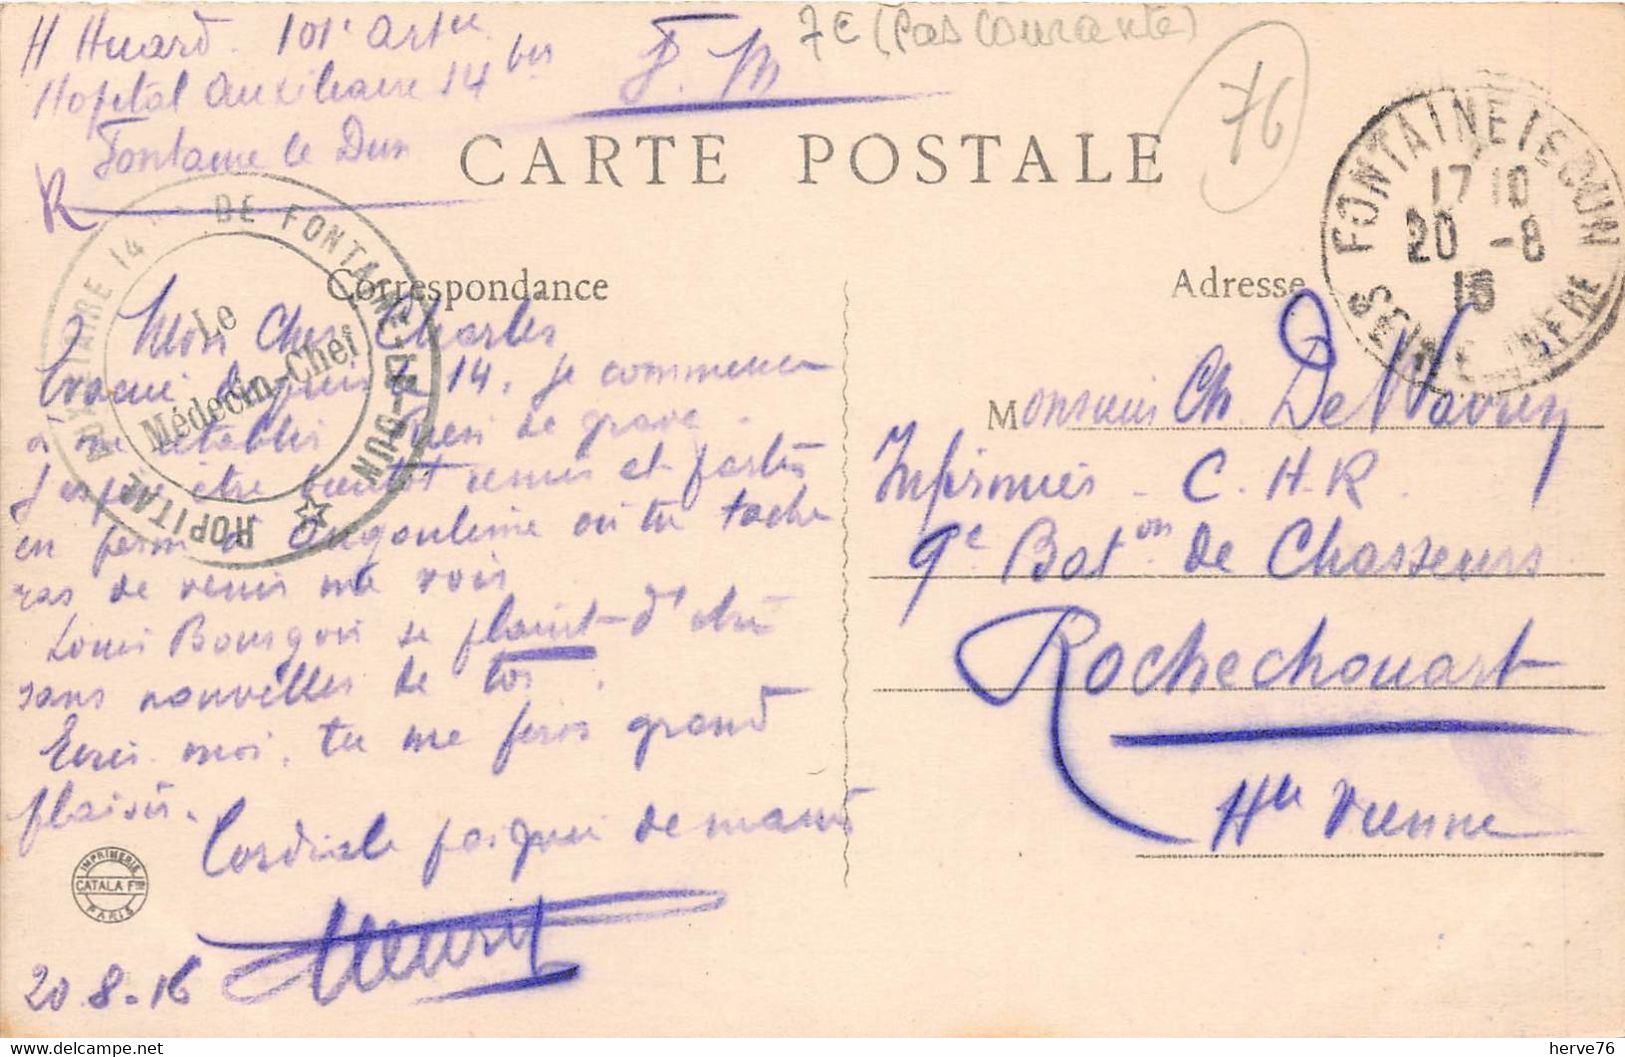 H Huard. 101e Artie
Hopital Auxiliaire 14 bis
Fontaine le Dun
F. M
7€ (Pas courante)
76
CARTE POSTALE
FONTAINE LE DUN
17 10
20 -8
16
SEINE INFRE
HOPITAL AUXILIAIRE 14 DE FONTAINE-LE-DUN
Le
Médecin-Chef
Correspondance
Adresse
Mon Cher Charles
Evacué depuis le 14, je commence
à me rétablir. Rien de grave.
J'espère être bientôt remis et partir
en perm à Angoulême où tu tache
ras de venir me voir
Louis Bourgoin se plaint d'être
sans nouvelles de toi.
Ecris moi, tu me feras grand
plaisir.
Cordiale poignée de mains
20 8-16
IMPRIMERIE
CATALA Fres
PARIS
Monsieur Ch. De Wavrin
Infirmier - C.H.R.
9e Baton de Chasseurs
Rochechouart
Hte Vienne
Delcampe.net
herve76